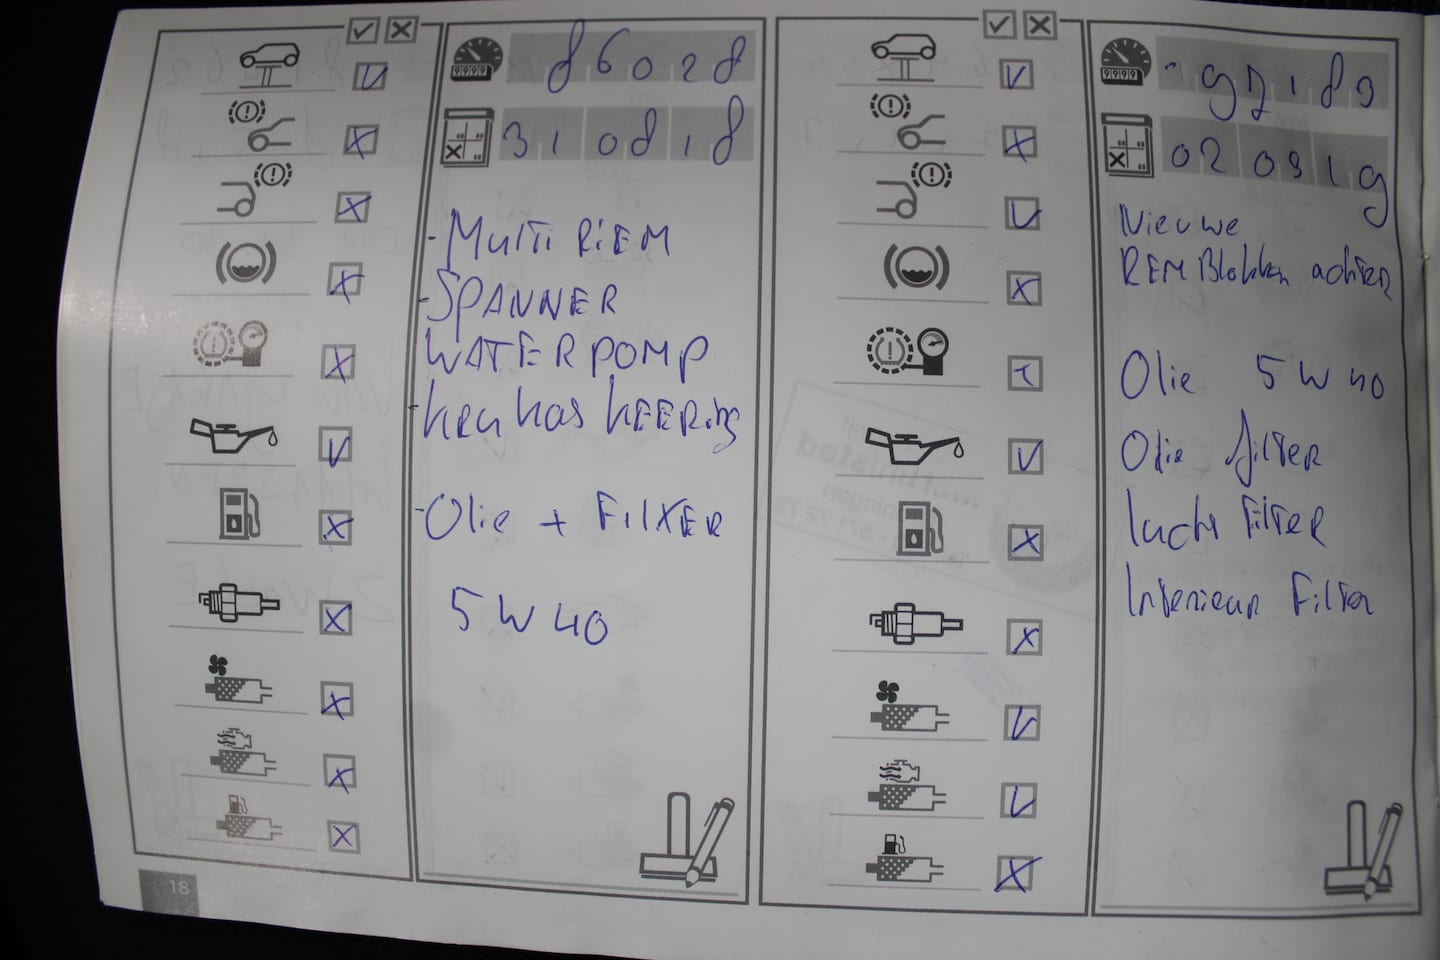 86028
310818
- Multi RiEM
- SPANNER
WATERPOMP
- KRUKAS KEERing
- Olie + FILTER
5 W 40
18
97189
020919
Nieuwe
REMBlokken achTER
Olie 5 W 40
Olie filTER
lucht FilTER
Interieur FilTER